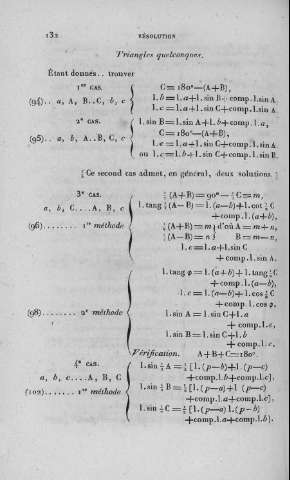 132 RÉSOLUTION
Triangles quelconques.
Étant donnés.. trouver
1er CAS.
(94).. a, A, B..C, b, c
C=180°—(A+B),
l.b=l.a+l.sin B+comp.l.sin A
l.c=l.a+l.sin C+comp.l.sin A.
2e CAS.
(95).. a, b, A..B, C, c
l.sin B=l.sin A+l.b+comp.l.a,
C=180°—(A+B),
l.c=l.a+l.sin C+comp.l.sin A.
ou l.c=l.b+l.sin C+comp.l.sin B.
[Ce second cas admet, en général, deux solutions.]
3e CAS.
a, b, C....A, B, c
(96)........ 1re méthode
½(A+B)=90°—½C=m,
l.tang ½(A—B)=l.(a—b)+l.cot ½C
+comp.l.(a+b),
½(A+B)=m } d'où A=m+n,
½(A—B)=n } B=m—n,
l.c=l.a+l.sin C
+comp.l.sin A.
(98)........ 2e méthode
l.tang φ=l.(a+b)+l.tang ½C
+comp.l.(a—b),
l.c=l.(a—b)+l.cos ½C
+comp.l.cos φ.
l.sin A=l.sin C+l.a
+comp.l.c,
l.sin B=l.sin C+l.b
+comp.l.c.
Vérification. A+B+C=180°.
4e CAS.
a, b, c....A, B, C
(102)....... 1re méthode
l.sin ½A=½[l.(p—b)+l.(p—c)
+comp.l.b+comp.l.c].
l.sin ½B=½[l.(p—a)+l.(p—c)
+comp.l.a+comp.l.c].
l.sin ½C=½[l.(p—a) l.(p—b)
+comp.l.a+comp.l.b].